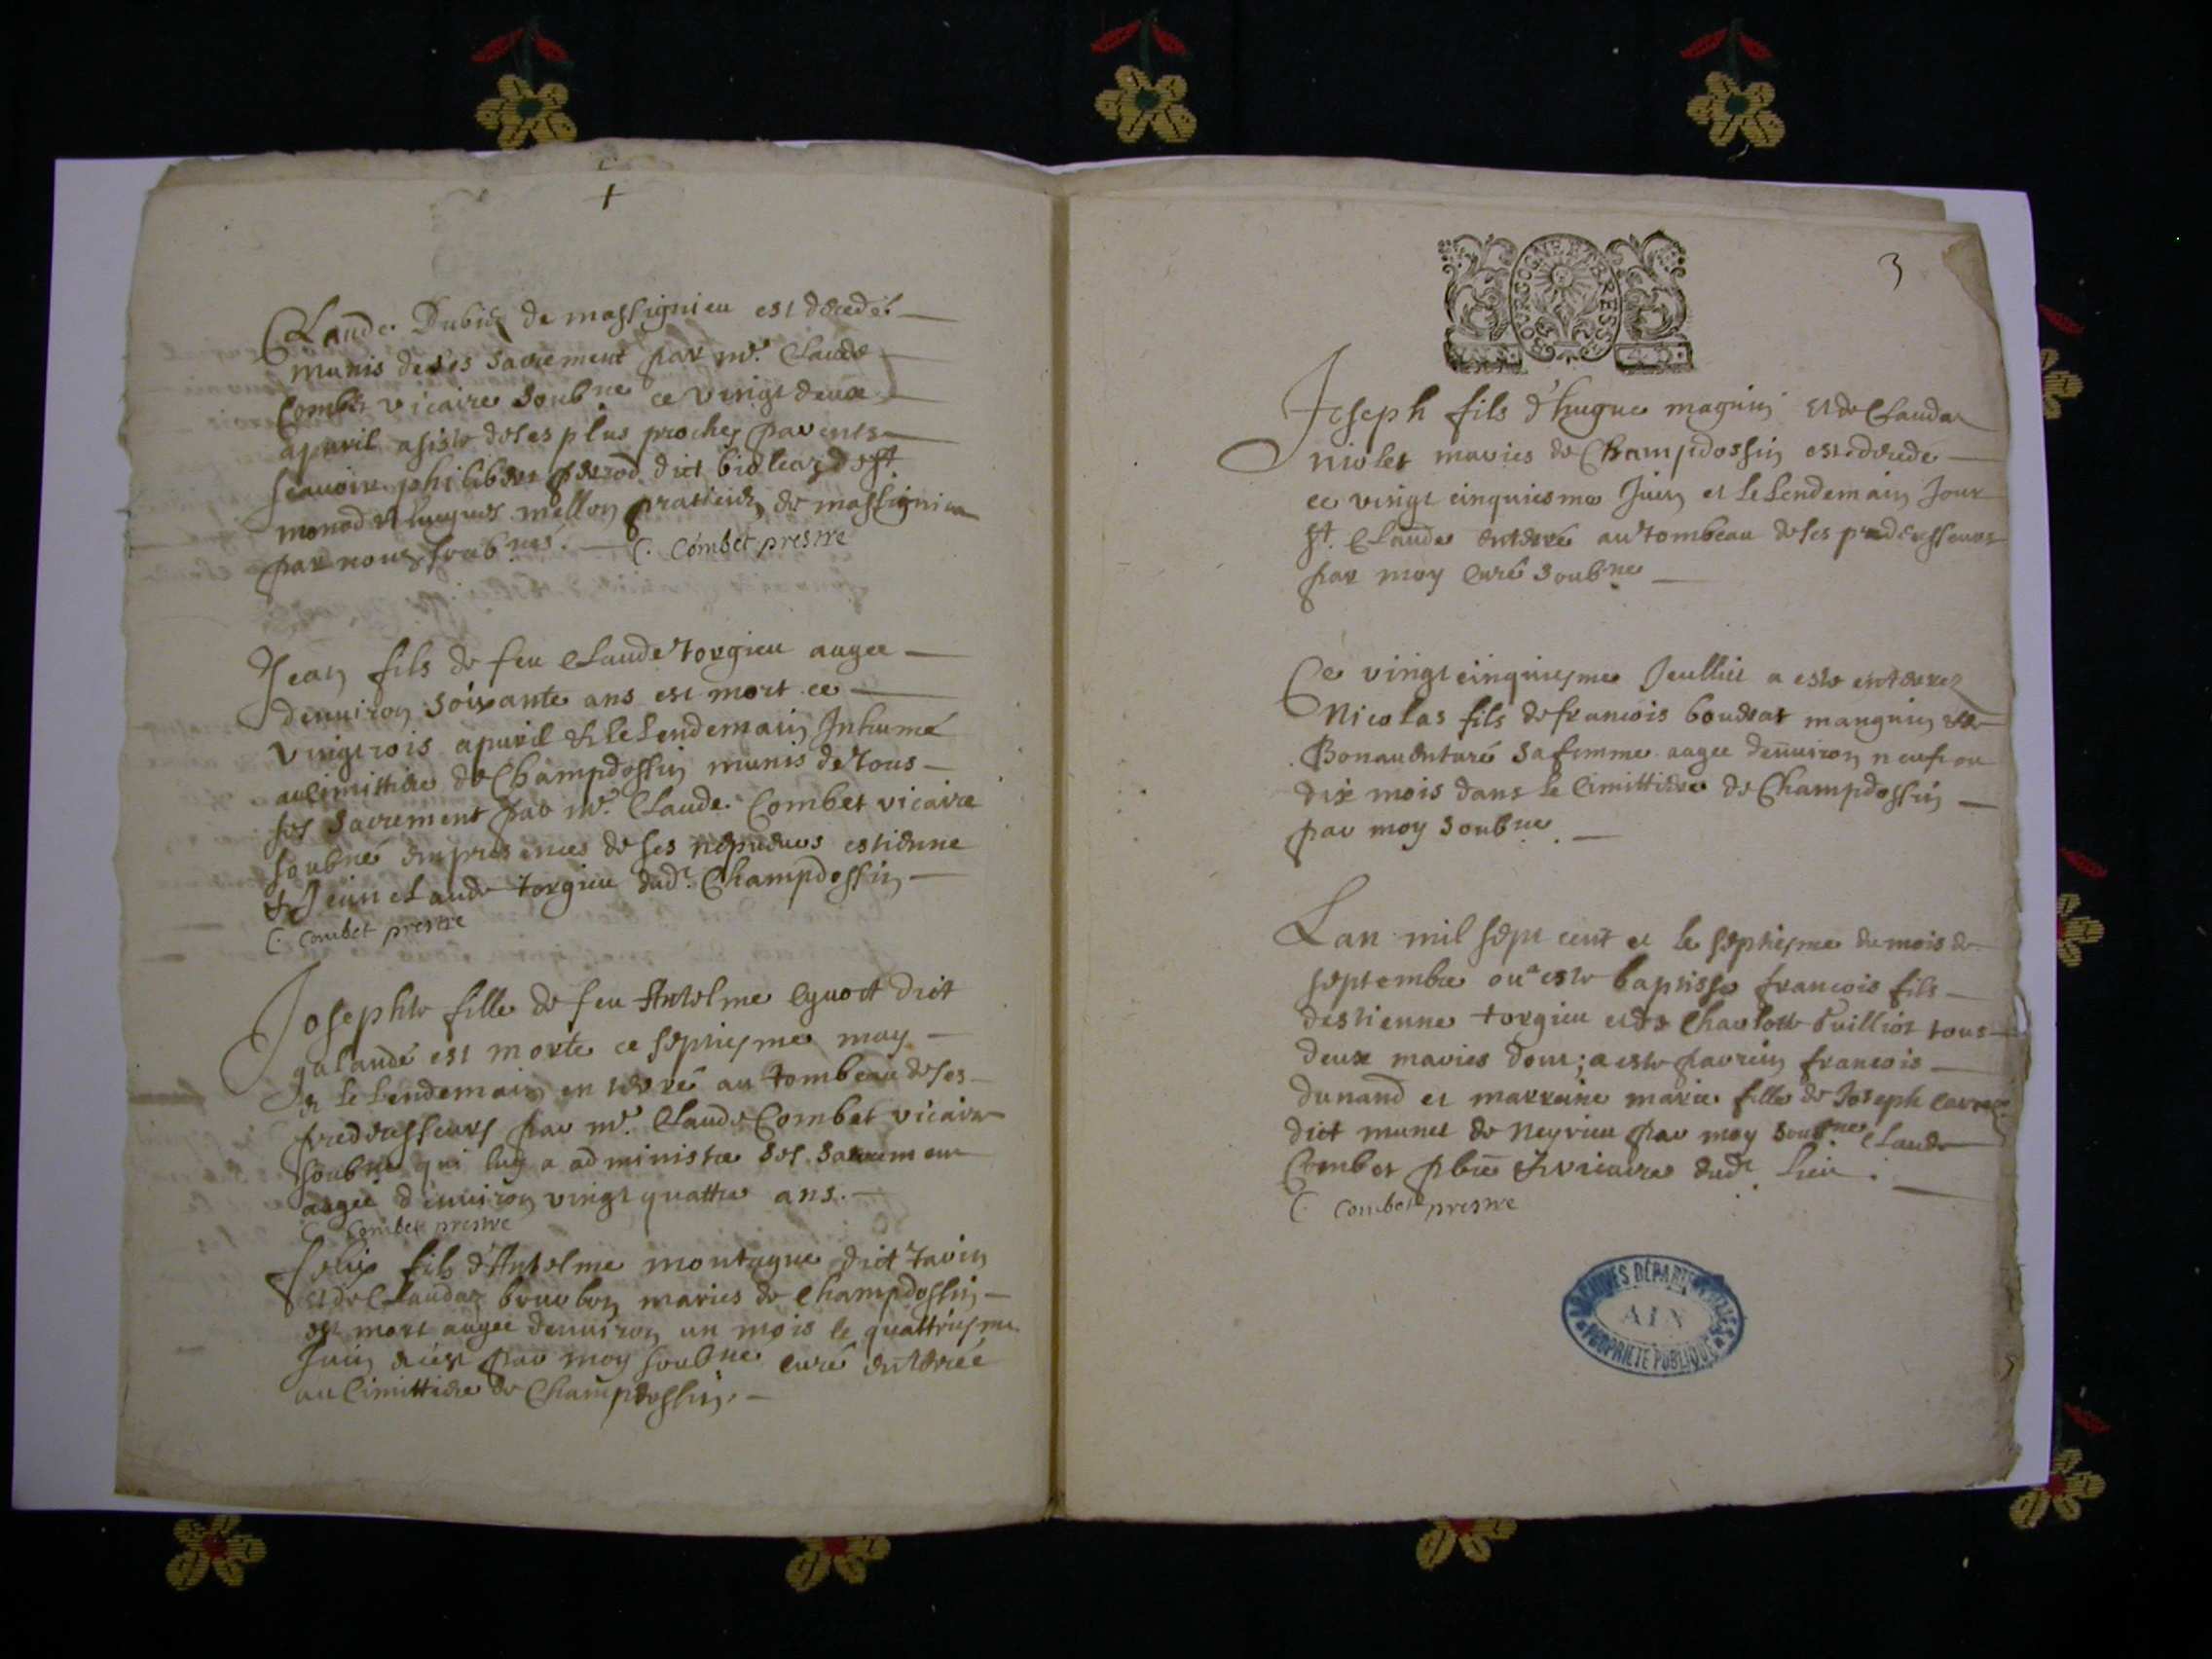 Claude Dubiez de massignieu est decedé
munis de ses sacrement par mr. Claude
Combet vicaire soubne ce vingt deux
apuril asiste de ses plus proches parents
scauoir philibert perod dict
monod et mellon de massignieu
par nous soubnes. C. Combet prestre
Jean fils de feu Claude torgieu augee
denuiron soixante ans est mort ce
vingtrois apuril et le lendemain Inhumé
au Cimittiere de Champdossin munis de tous
ses sacrement par mr. Claude Combet vicaire
soubné en presences de ses nepueus estienne
et Jean claude torgieu dudt. Champdossin
C. Combet prestre
Josephte fille de feu Antelme dict
galande est morte ce septiesme may
et le lendemain enterré au tombeau de ses
predecesseurs par mr. Claude Combet vicaire
soubne qui luy a administre ses sacrement
augee denuiron vingt quattre ans.
C. Combet prestre
felix fils d'Antelme montagne dict tavin
et de Claudaz maries de Champdossin
est mort augee denuiron un mois le quattriesme
Juin par moy soubné curé enterrée
au Cimittiere de Champdossin.
3
BOURGOGNE ET BRESSE
Joseph fils d'hugue magnin et de Claudaz
niolet maries de Champdossin est decede
ce vingt cinquiesme Juin et le lendemain Jour
st. Claude enterré au tombeau de ses predecesseurs
par moy curé soubne
Ce vingt cinquiesme Jeulliet a este enterrez
Nicolas fils de francois boudrat mangnin et de
Bonauenture sa femme augee denuiron neuf ou
dix mois dans le Cimittiere de Champdossin
par moy soubne.
Lan mil sept cent et le septiesme du mois de
septembre a este baptisse francois fils
destienne torgieu et de Charlotte tous
deux maries dont; a este parrein francois
dunand et marraine marie fille de Joseph
dict munet de Neyrieu par moy soubne Claude
Combet pbre et vicaire dudt. lieu.
C. Combet prestre
ARCHIVES DÉPARTEMENTALES
AIN
PROPRIÉTÉ PUBLIQUE